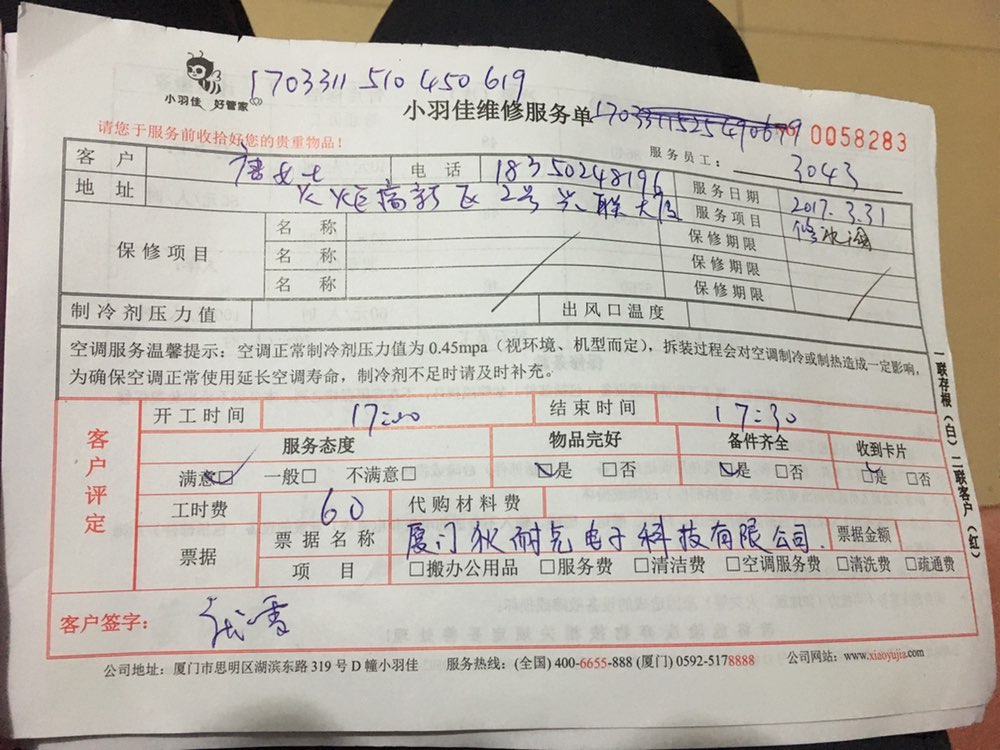 170331151045061 9
小羽佳 好管家
小羽佳维修服务单
0058283
请您于服务前收拾好您的贵重物品！
服务员工： 3043
客户 唐女士 电话 18350248196 服务日期 2017.3.31
地址 火炬高新区2号兴联大厦 服务项目 修冰箱
保修项目 名称 保修期限
名称 保修期限
名称 保修期限
制冷剂压力值 出风口温度
空调服务温馨提示：空调正常制冷剂压力值为0.45mpa（视环境、机型而定），拆装过程会对空调制冷或制热造成一定影响，
为确保空调正常使用延长空调寿命，制冷剂不足时请及时补充。
客户评定
开工时间 17:00 结束时间 17:30
服务态度 物品完好 备件齐全 收到卡片
满意□ 一般□ 不满意□ □是 □否 □是 □否 □是 □否
工时费 60 代购材料费
票据 票据名称 厦门狄耐克电子科技有限公司. 票据金额
项目 □搬办公用品 □服务费 □清洁费 □空调服务费 □清洗费 □疏通费
客户签字：
一联存根（白） 二联客户（红）
公司地址：厦门市思明区湖滨东路319号D幢小羽佳 服务热线：(全国) 400-6655-888 (厦门) 0592-5178888 公司网站：www.xiaoyujia.com